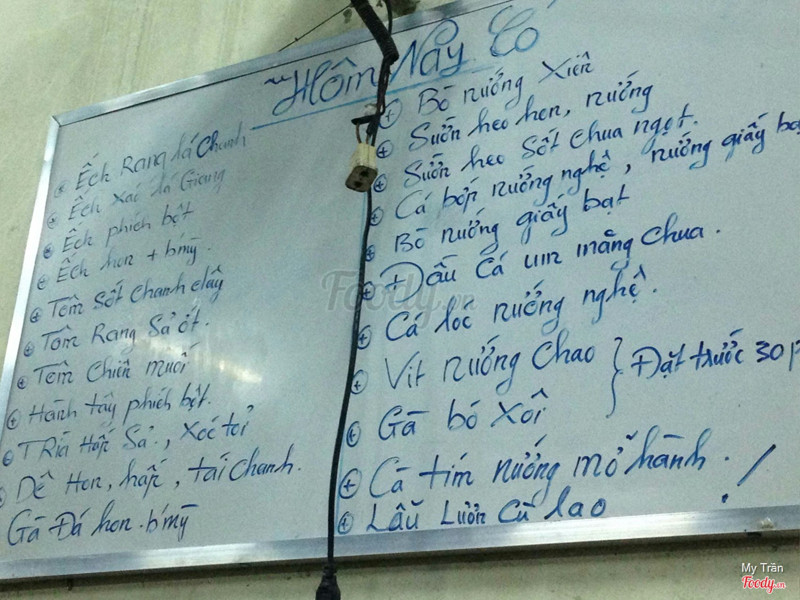 Hôm Nay Có
Ếch Rang lá chanh
Ếch Xào lá Giang
Ếch phích bột
Ếch hon + b'mỳ.
Tôm Sốt Chanh dây
Tôm Rang Sả ớt.
Tôm Chiên muối
Hành tây phích bột.
TRìa Hấp Sả, Xốc tỏi
Dê Hon, hấp, tái chanh.
Gà Đá hon. b'mỳ
Bò nướng Xiên
Sườn heo hon, nướng
Sườn heo Sốt Chua ngọt.
Cá bớp nướng nghệ, nướng giấy bạ
Bò nướng giấy bạt
Đầu Cá um măng Chua.
Cá lóc nướng nghệ.
Vịt nướng Chao } Đặt trước 30 p
Gà bó Xôi
Cà tím nướng mỡ hành.
Lẩu Lươn Cù lao !
Foody.vn
My Trần
Foody.vn